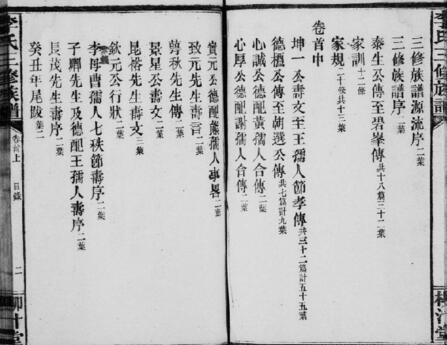 三修族譜源流序二葉
三修族譜序一葉
泰生公傳至碧峯傳共十八篇三十二葉
家訓十二條
家規二十條共十三葉
卷首中
坤一公壽文主王孺人節孝傳共三十二篇計五十五葉
德植公傳至朝選公傳共七篇計九葉
心誠公德配黄孺人合傳二葉
心厚公德配謝孺人合傳二葉
貴元公德配熊孺人事畧二葉
致元先生壽言一葉
蒔秋先生傳一葉
景星公壽文二葉
昆裕先生壽文三葉
欽元公行狀二葉
李母曹孺人七秩節壽序二葉
子聊先生及德配王孺人壽序二葉
辰茂先生壽序二葉
癸丑年尾跋葉二
李氏三修族譜
卷首上
目錄
二
柳汁堂